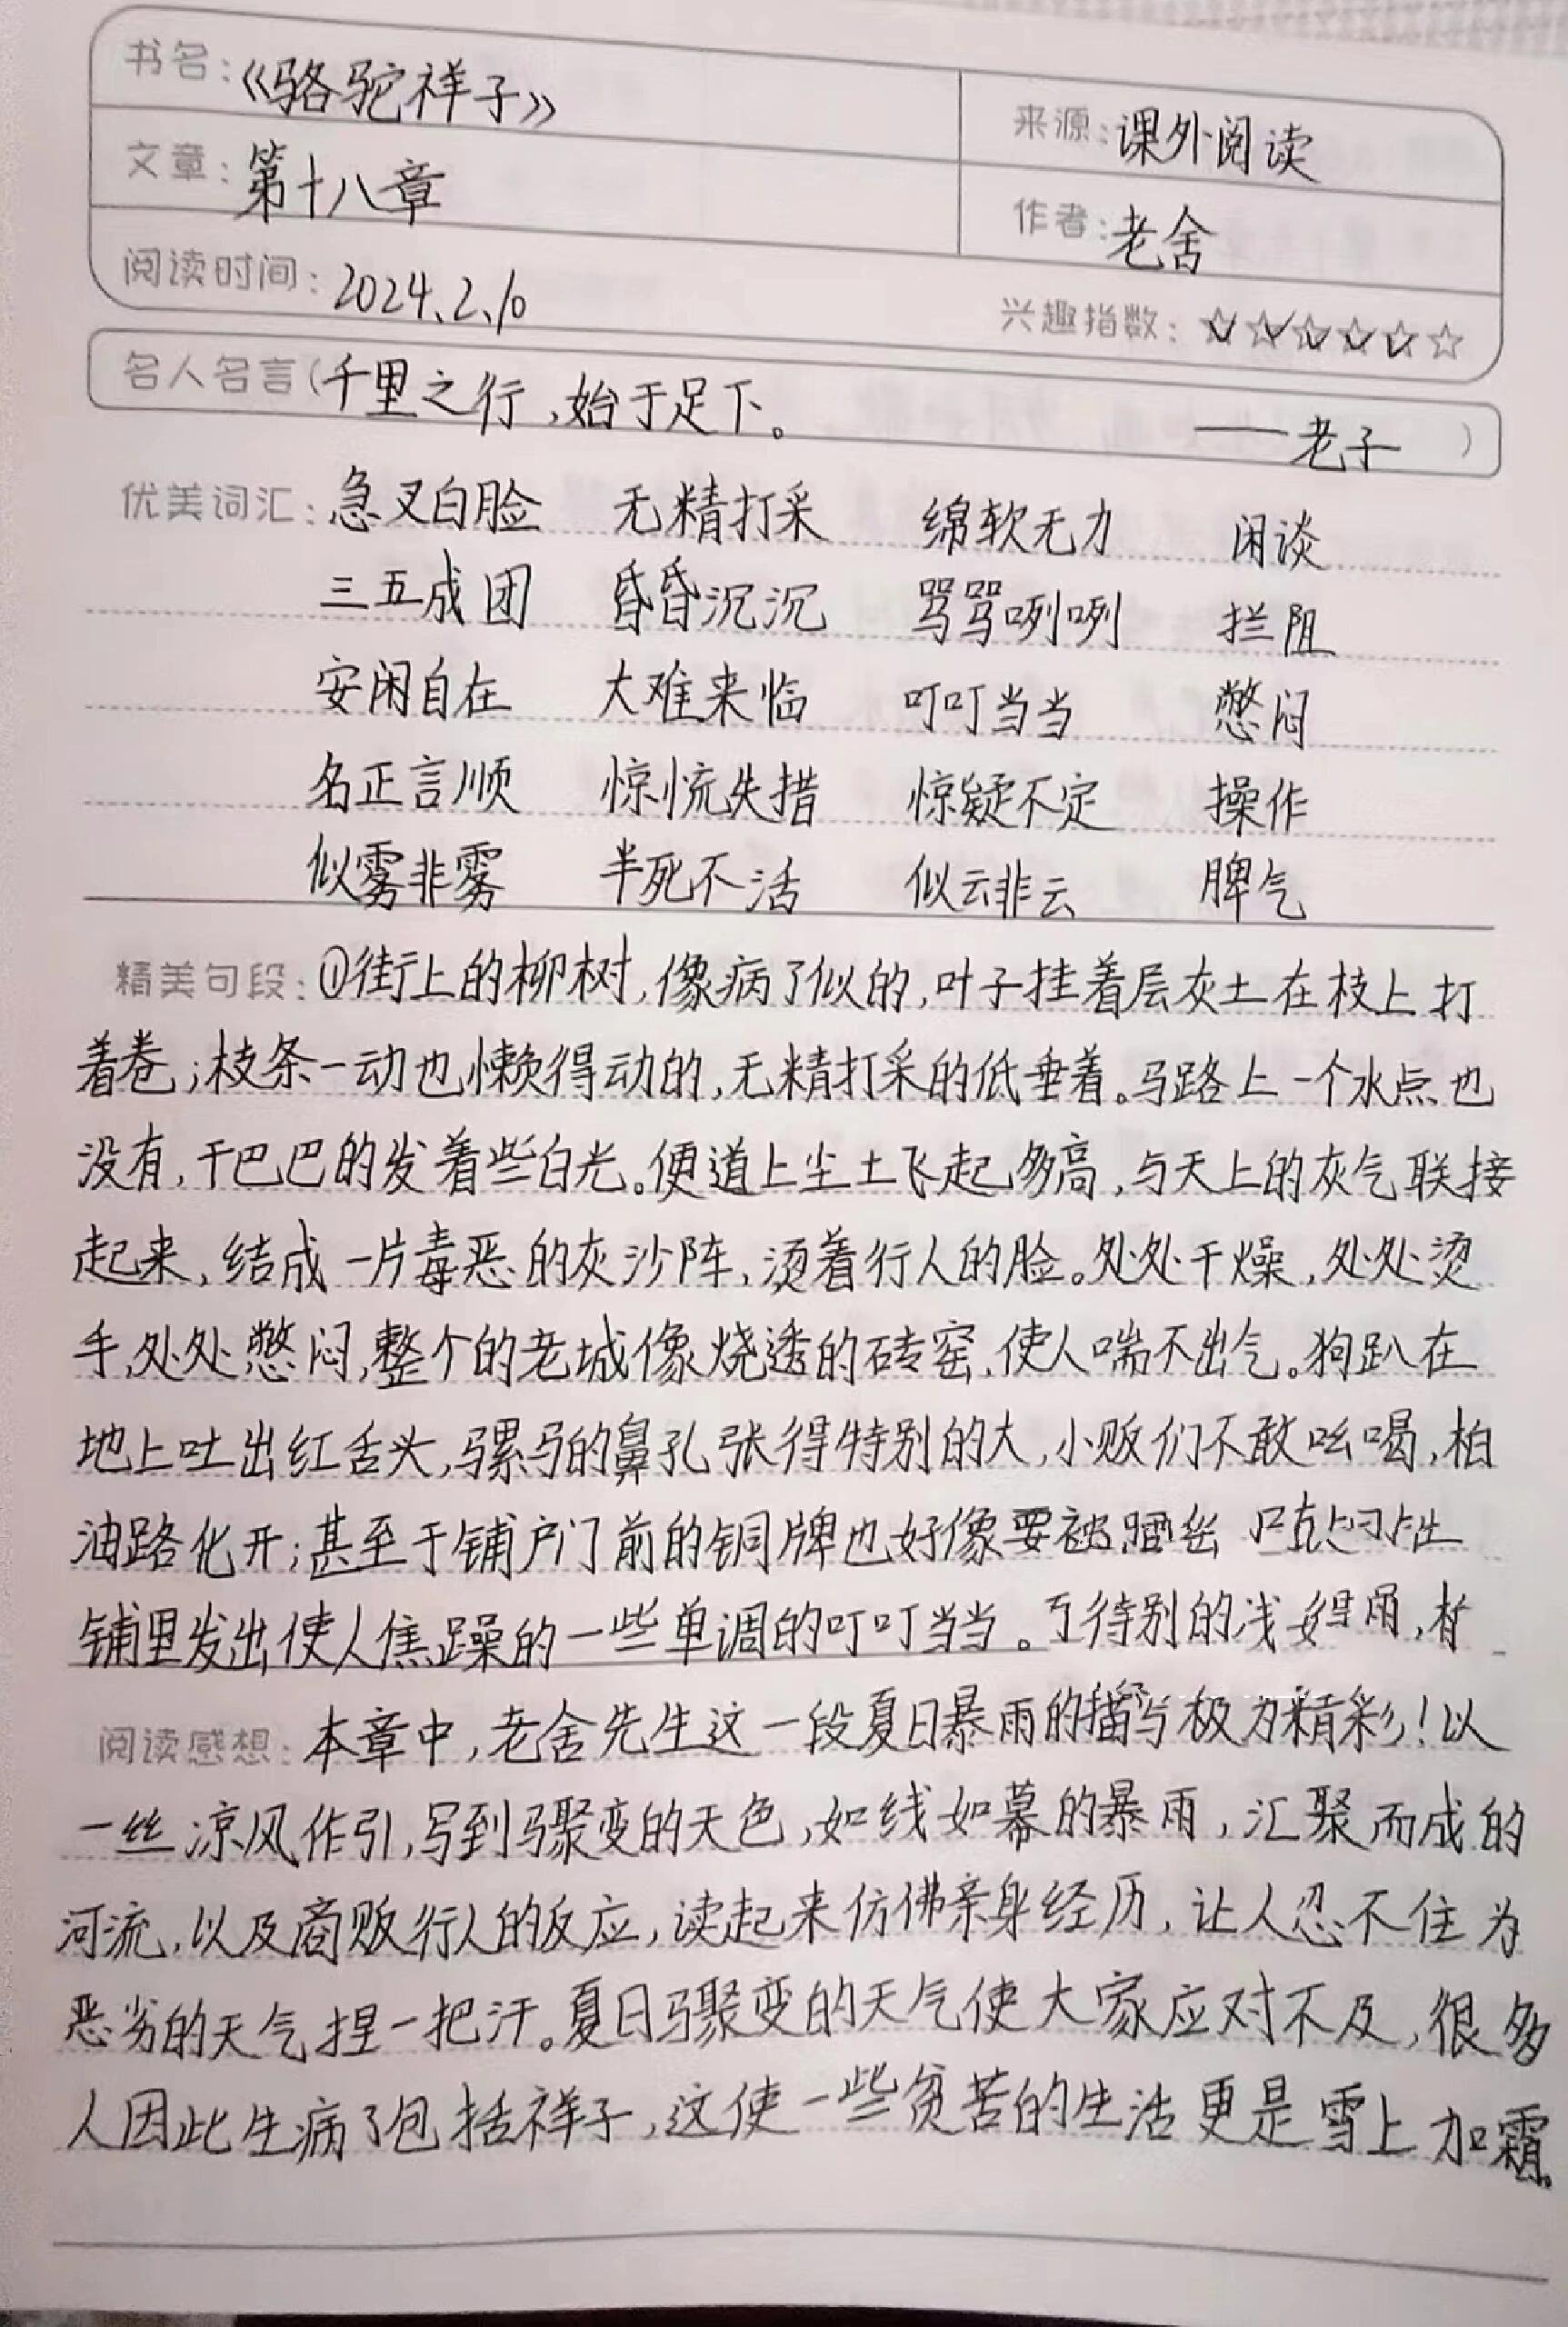 书名:《骆驼祥子》
来源:课外阅读
文章:第十八章
作者:老舍
阅读时间:2024.2.10
兴趣指数:
名人名言(千里之行,始于足下。 ——老子)
优美词汇:急叉白脸 无精打采 绵软无力 闲谈
三五成团 昏昏沉沉 骂骂咧咧 拦阻
安闲自在 大难来临 叮叮当当 憋闷
名正言顺 惊慌失措 惊疑不定 操作
似雾非雾 半死不活 似云非云 脾气
精美句段:①街上的柳树,像病了似的,叶子挂着层灰土在枝上打
着卷;枝条一动也懒得动的,无精打采的低垂着。马路上一个水点也
没有,干巴巴的发着些白光。便道上尘土飞起多高,与天上的灰气联接
起来,结成一片毒恶的灰沙阵,烫着行人的脸。处处干燥,处处烫
手,处处憋闷,整个的老城像烧透的砖窑,使人喘不出气。狗趴在
地上吐出红舌头,骡马的鼻孔张得特别的大,小贩们不敢吆喝,柏
油路化开;甚至于铺户门前的铜牌也好像要被晒
铺里发出使人焦躁的一些单调的叮叮当当。
阅读感想:本章中,老舍先生这一段夏日暴雨的描写极为精彩!以
一丝凉风作引,写到骤变的天色,如线如幕的暴雨,汇聚而成的
河流,以及商贩行人的反应,读起来仿佛亲身经历,让人忍不住为
恶劣的天气捏一把汗。夏日骤变的天气使大家应对不及,很多
人因此生病了包括祥子,这使一些贫苦的生活更是雪上加霜。